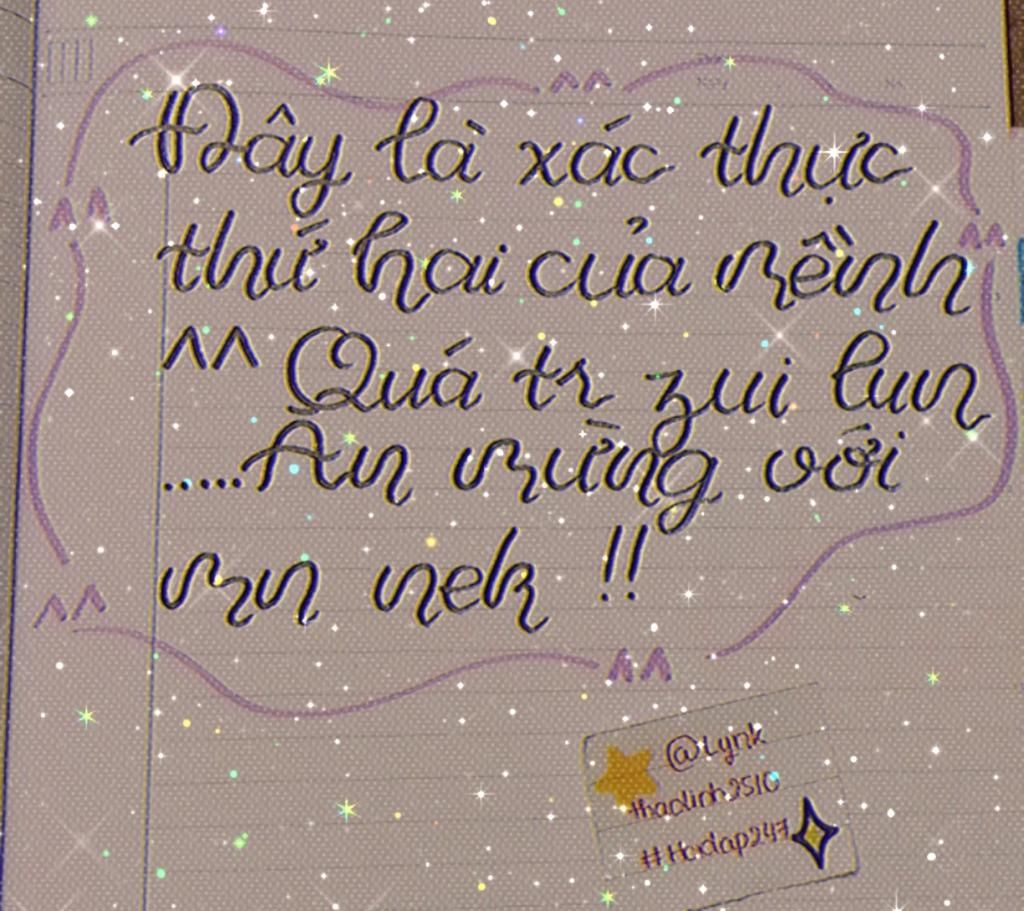 Đây là xác thực
thứ hai của mềinh
^^ Quá tr zui lun
.....Ăn mừng với
mn nek !!
@Lynk
thaolinh2510
#Hoidap247